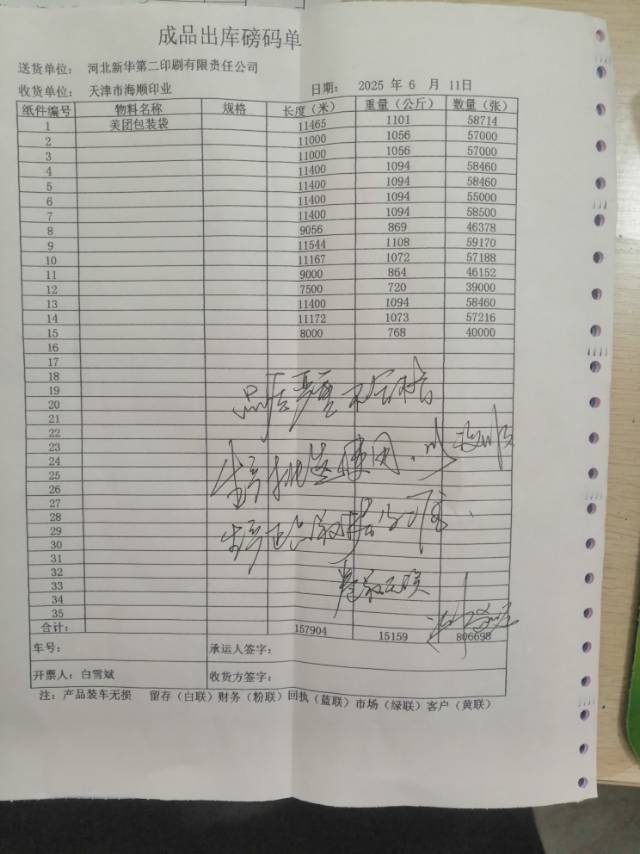 成品出库磅码单
送货单位： 河北新华第二印刷有限责任公司
收货单位： 天津市海顺印业 日期： 2025 年 6 月 11日
纸件编号 物料名称 规格 长度（米） 重量（公斤） 数量（张）
1 美团包装袋 11465 1101 58714
2 11000 1056 57000
3 11000 1056 57000
4 11400 1094 58460
5 11400 1094 58460
6 11400 1094 55000
7 11400 1094 58500
8 9056 869 46378
9 11544 1108 59170
10 11167 1072 57188
11 9000 864 46152
12 7500 720 39000
13 11400 1094 58460
14 11172 1073 57216
15 8000 768 40000
16
17
18
19
20
21
22
23
24
25
26
27
28
29
30
31
32
33
34
35
合计： 157904 15159 806698
车号： 承运人签字：
开票人：白雪斌 收货方签字：
注：产品装车无损 留存（白联）财务（粉联）回执（蓝联）市场（绿联）客户（黄联）